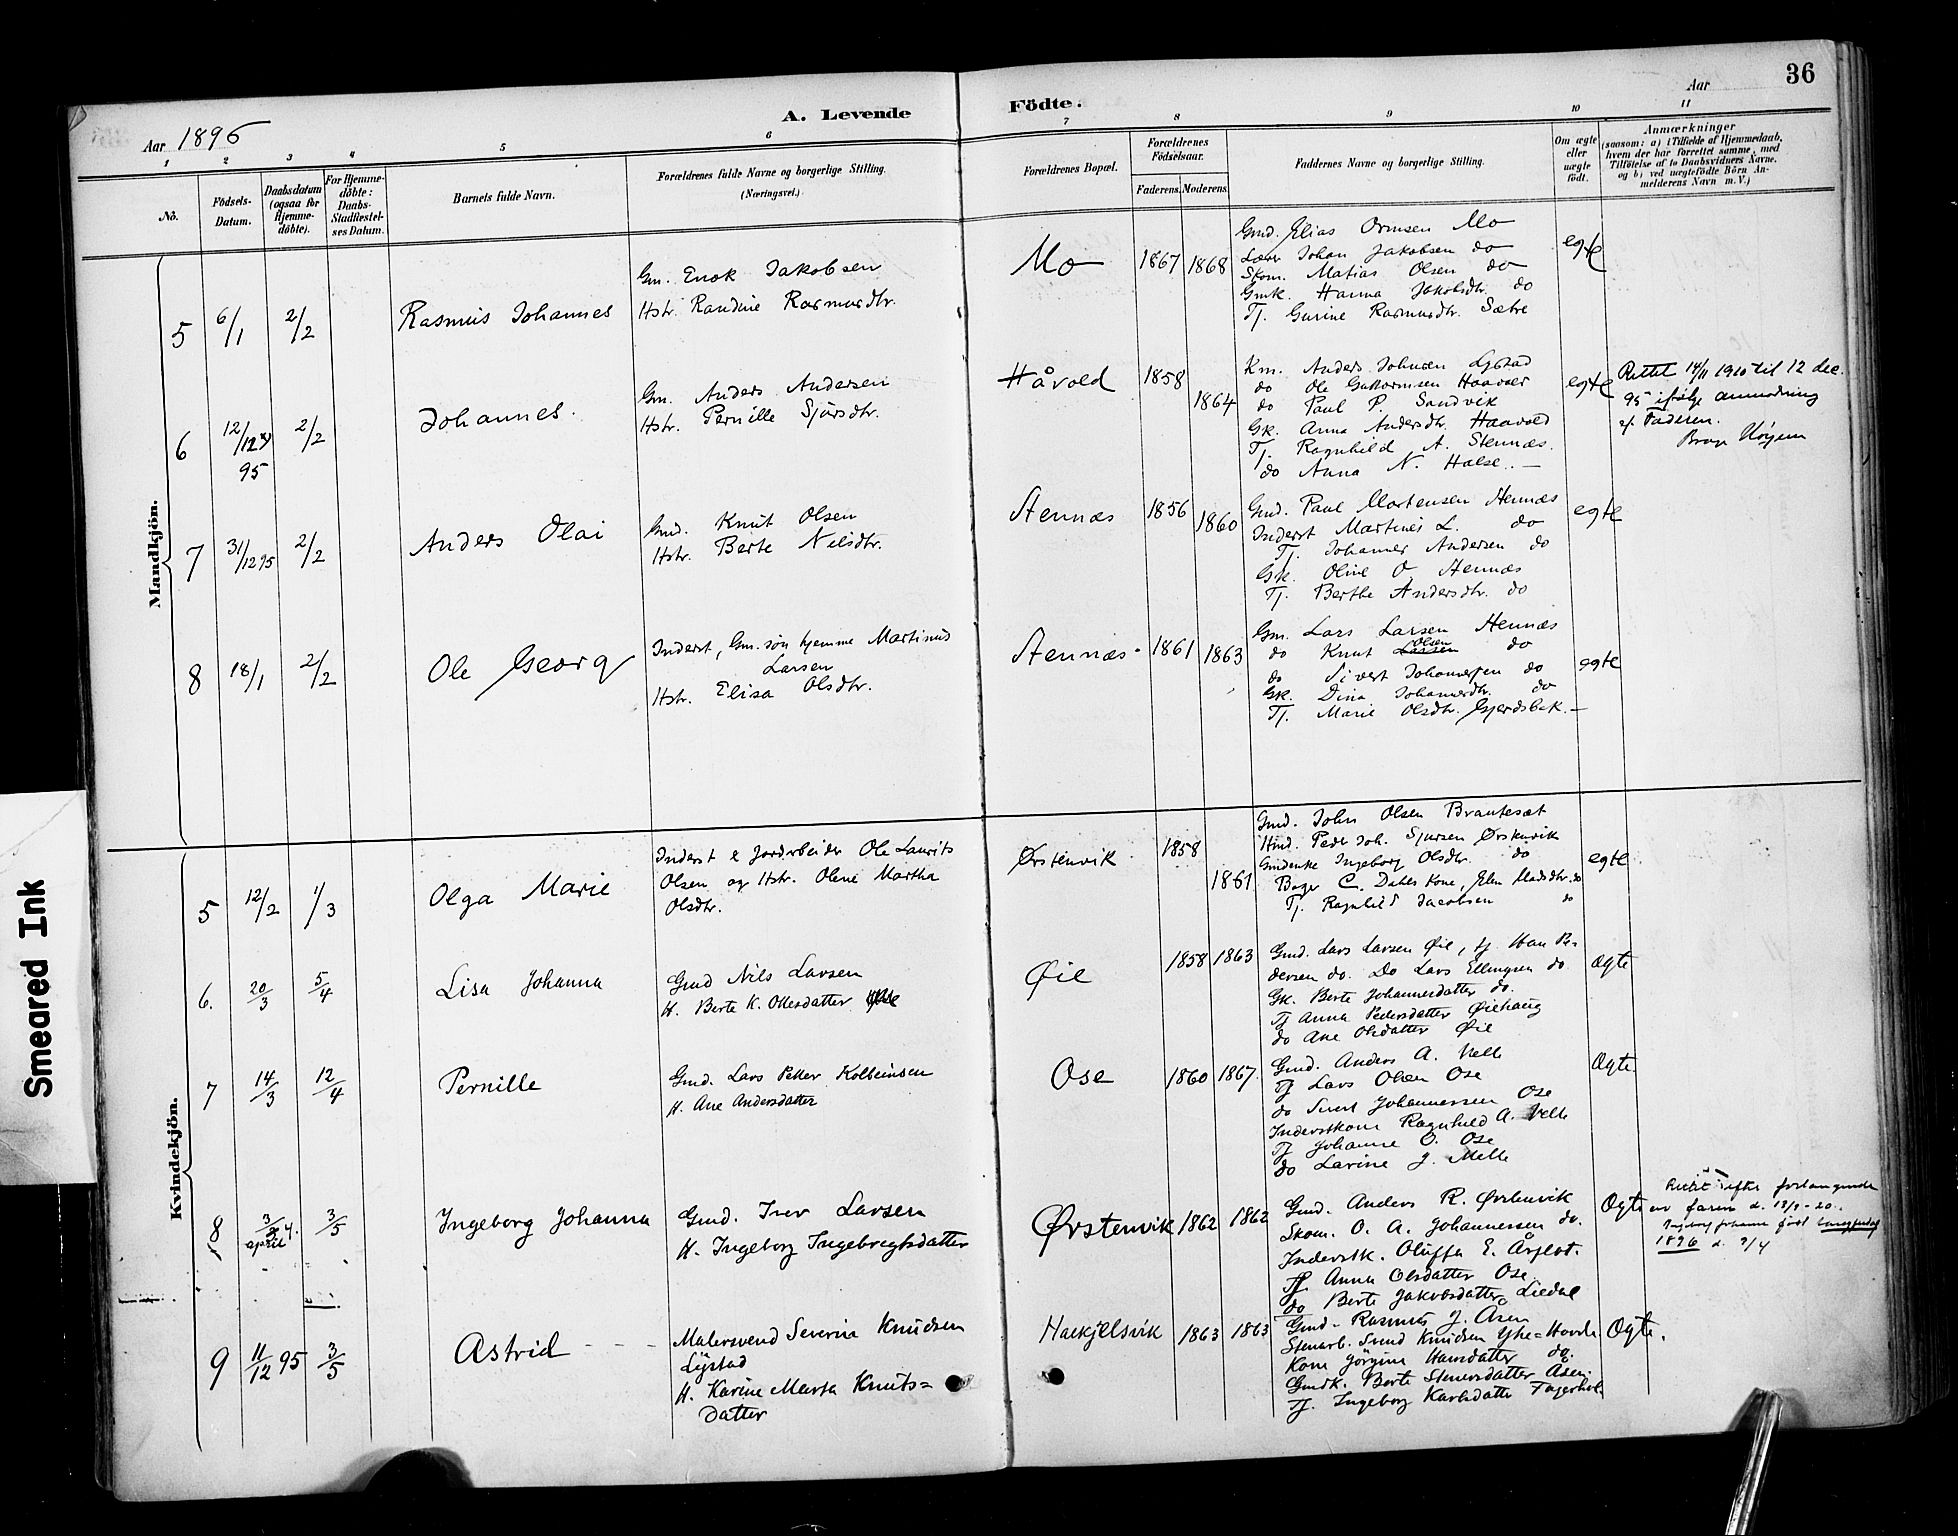 36
A. Levende Födte.
Aar 1896
Aar
1 2 3 4 5 6 7 8 9 10 11
No.
Födsels-Datum.
Daabsdatum (ogsaa for Hjemme-döbte).
For Hjemme-döbte: Daabs-Stadfæstel-ses Datum.
Barnets fulde Navn.
Forældrenes fulde Navne og borgerlige Stilling.
(Næringsvei.)
Forældrenes Bopæl.
Forældrenes Födselsaar.
Faderens. Moderens.
Faddernes Navne og borgerlige Stilling.
Om ægte eller uægte födt.
Anmærkninger
(saasom: a) i Tilfælde af Hjemmedaab, hvem der har forrettet samme, med Tilföielse af to Daabsvidners Navne, og b) ved uægtefödte Börn An-melderens Navn m. V.)
Mandkjön.
5 6/1 2/2 Rasmus Johannes
Gm. Enok Jakobsen
Hstr. Randine Rasmusdtr.
Mo 1867 1868
Gmd. Elias Ormsen Mo
Johan Jakobsen do
Skom. Matias Olsen do
Gmk. Hanna Jakobsdtr. do
Tj. Gurine Rasmusdtr. Sætre
egte
6 12/12 95 2/2 Johannes.
Gm. Anders Andersen
Hstr. Pernille Sjursdtr.
Håvold 1858 1864
Km. Anders Johnsen Lystad
do Ole Guttormsen
do Paul P. Sandvik
Gk. Anna Andersdtr. Haavold
Tj. Ragnhild A. Stennæs.
do Anna N. Halse. —
egte
Rettet 14/11 1910 til 12 dec.
95 ifølge anmodning
af Faderen.
7 31/12 95 2/2 Anders Olai
Gmd. Knut Olsen
Hstr. Berte Nilsdtr.
Stennæs 1856 1860
Gmd. Paul Martensen Stennæs
Inderst Martines L. do
Tj. Johannes Andersen do
Gk. Oline O Stennæs
Tj. Berthe Andersdtr. do
egte
8 18/1 2/2 Ole Georg
Inderst, Gm. søn hjemme Martinus
Larsen
Hstr. Elisa Olsdtr.
Stennæs 1861 1863
Gm. Lars Larsen Stennæs
Olsen
do Knut Larsen do
do Sivert Johannessen do
Gk. Dina Johannesdtr. do
Tj. Marie Olsdtr. Gjerdsbak. —
egte
Kvindekjön.
5 12/2 1/3 Olga Marie
Inderst & Jordarbeider Ole Laurits
Olsen og Hstr. Olene Martha
Olsdtr.
Ørstenvik 1858 1861
Gmd. John Olsen Brautesæt
Peder Joh. Sjursen Ørstenvik
Gmdenke Ingeborg Olsdtr. do
Bager C. Dahls Kone, Elen Madsdtr. do
Tj. Ragnhild Jacobsen do
egte
6. 20/3 5/4 Lisa Johanna
Gmd Nils Larsen
H. Berte K. Olesdatter
Øie 1858 1863
Gmd. Lars Larsen Øie, tj. Hans Pe-
dersen do. Do Lars Ellingsen do
Gk. Berte Johannesdatter do.
Tj Anna Pedersdatter Øiehaug
do Ane Olsdatter Øie
Ægte
7 14/3 12/4 Pernille
Gmd. Lars Petter Kolbeinsen
H. Ane Andersdatter
Ose 1860 1867.
Gmd. Anders A. Velle
Tj Lars Olsen Ose
do Sivert Johannessen Ose
Inderstkone Ragnhild A. Velle
Tj Johanne O. Ose
do Lavine J. Melle
Ægte
8 3/4 april 3/5 Ingeborg Johanna
Gmd. Iver Larsen
H. Ingeborg Ingebregtsdatter
Ørstenvik 1862 1862
Gmd. Anders R. Ørstenvik
Skom. O. A. Johannessen do.
Inderstk. Oluffa E. Årflot.
Tj Anna Olsdatter Ose
do Berte Jakobsdatter Liedal
Ægte
Rettet efter forlangende
av faren d. 18/9-20.
Ingeborg Johanna født
1896 d. 3/4
9 11/12 95 3/5 Astrid
Malersvend Severin Knudsen
Lystad
H. Karine Marta Knuts=
datter
Haekjelsvik 1863 1863
Gmd. Rasmus J. Åsen
Stenarb. Svend Knudsen Yhe=Hovde
Kone Jörgine Hansdatter do.
Gmdk. Berte Steversdatter Åsen
Tj. Ingeborg Karlsdatter
Ægte.
Smeared Ink